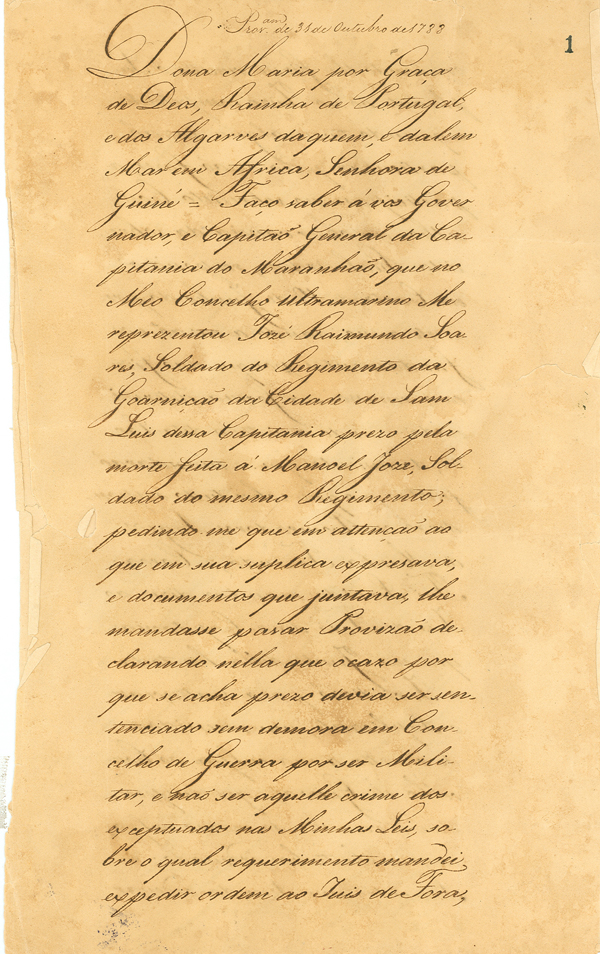 Prov.am de 31 de Outubro de 1788
1
Dona Maria por Graça
de Deos, Rainha de Portugal,
e dos Algarves daquem, e dalem
Mar em Africa, Senhora de
Guiné = Faço saber á vos Gover
nador, e Capitaõ General da Ca-
pitania do Maranhaõ, que no
Meo Concelho Ultramarino Me
reprezentou Jozé Raimundo Soa-
res, Soldado do Regimento da
Goarniçaõ da Cidade de Sam
Luis dessa Capitania prezo pela
morte feita á Manoel Joze, Sol-
dado do mesmo Regimento;
pedindo me que em attençaõ ao
que em sua suplica expresava,
e documentos que juntava, lhe
mandasse pasar Provizaõ de-
clarando nella que o cazo por
que se acha prezo devia ser sen-
tenciado sem demora em Con-
celho de Guerra por ser Mili-
tar, e naõ ser aquelle crime dos
exceptuados nas Minhas Leis, so-
bre o qual requerimento mandei
expedir ordem ao Juis de Fora,